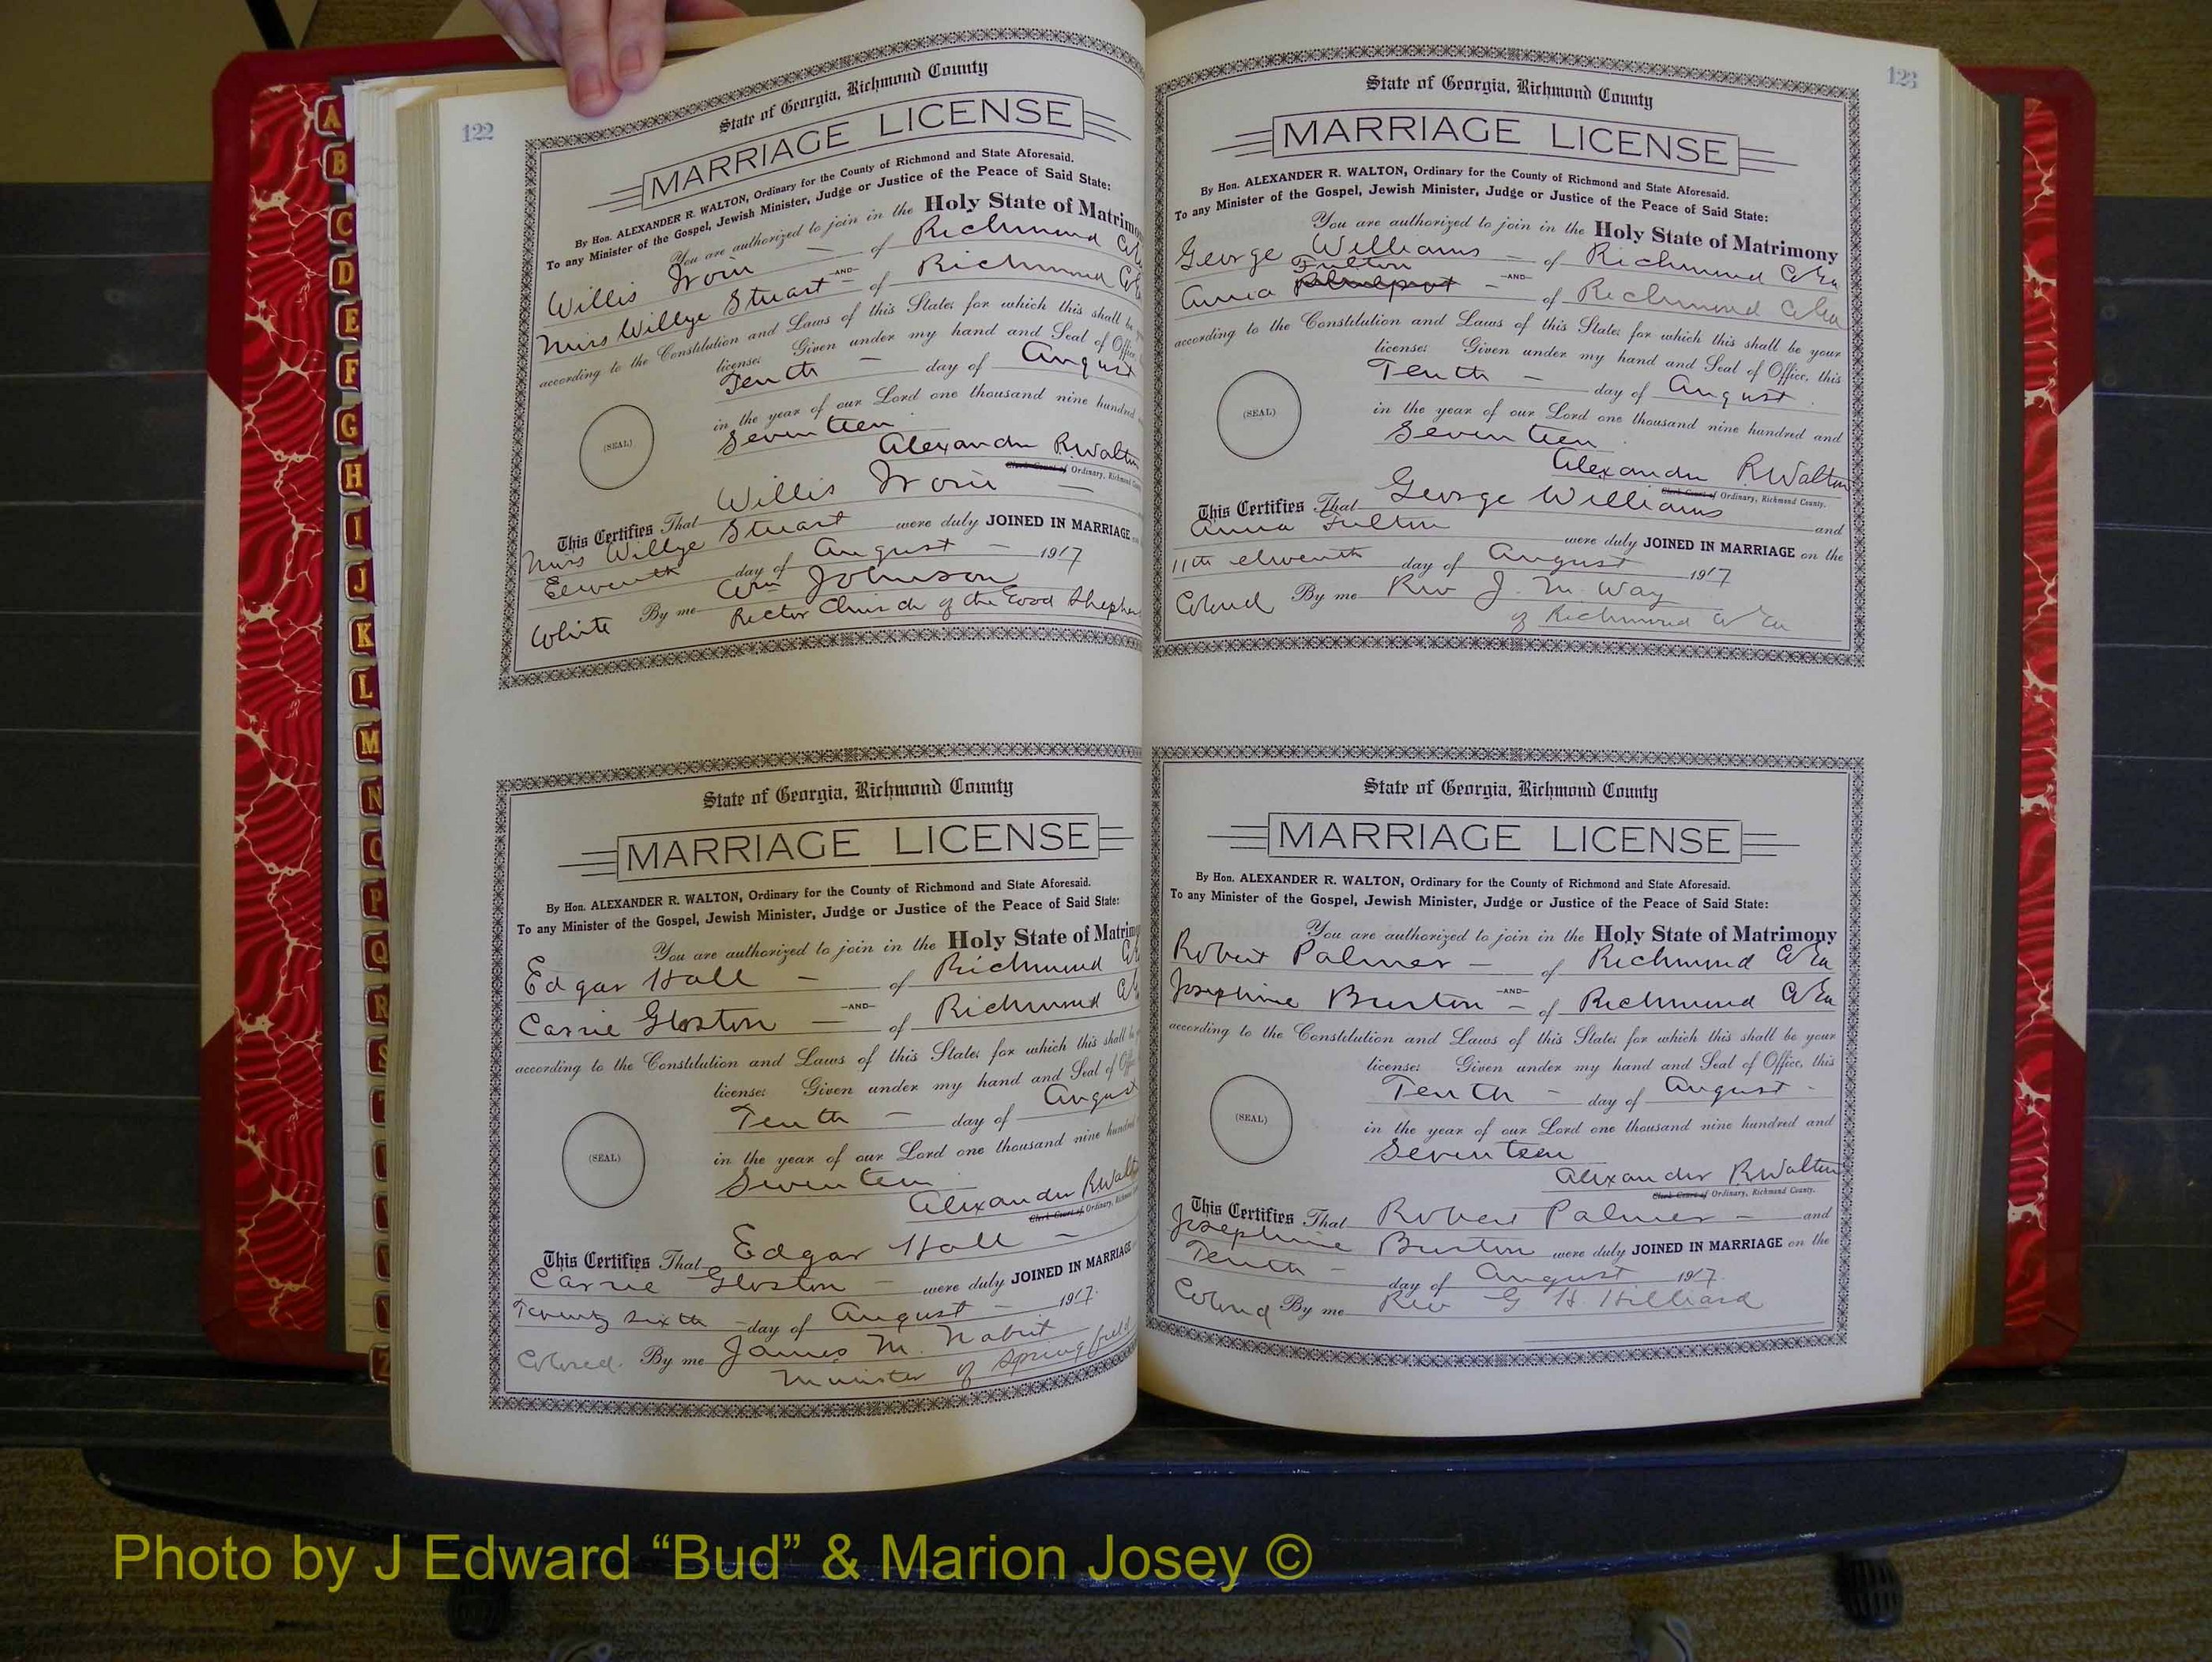 122
State of Georgia, Richmond County
MARRIAGE LICENSE
By Hon. ALEXANDER R. WALTON, Ordinary for the County of Richmond and State Aforesaid.
To any Minister of the Gospel, Jewish Minister, Judge or Justice of the Peace of Said State:
You are authorized to join in the Holy State of Matrimo
Willis — of Richmond
AND
Miss Willye Stuart — of Richmond
according to the Constitution and Laws of this State; for which this shall be
license: Given under my hand and Seal of Office,
Tenth — day of August
in the year of our Lord one thousand nine hundred
Seventeen
(SEAL)
Alexander R Walton
Clerk Court of Ordinary, Richmond
This Certifies That Willis
Miss Willye Stuart were duly JOINED IN MARRIAGE
Eleventh day of August — 1917
By me Wm Johnson
White Rector Church of the Good Shepher
State of Georgia, Richmond County
MARRIAGE LICENSE
By Hon. ALEXANDER R. WALTON, Ordinary for the County of Richmond and State Aforesaid.
To any Minister of the Gospel, Jewish Minister, Judge or Justice of the Peace of Said State:
You are authorized to join in the Holy State of Matrimo
Edgar Hall — of Richmond
AND
Carrie Gloston — of Richmond
according to the Constitution and Laws of this State; for which this shall be
license: Given under my hand and Seal of Offi
Tenth — day of August
in the year of our Lord one thousand nine hundred
Seventeen
(SEAL)
Alexander R Walt
Clerk Court of Ordinary, Richmond
This Certifies That Edgar Hall —
Carrie Gloston — were duly JOINED IN MARRIAGE
Twenty sixth — day of August — 1917.
Colored. By me James M. Nabrit
Minister of Springfield
123
State of Georgia, Richmond County
MARRIAGE LICENSE
By Hon. ALEXANDER R. WALTON, Ordinary for the County of Richmond and State Aforesaid.
To any Minister of the Gospel, Jewish Minister, Judge or Justice of the Peace of Said State:
You are authorized to join in the Holy State of Matrimony
George Williams — of Richmond Co Ga
Fulton
AND
Anna — of Richmond Co Ga
according to the Constitution and Laws of this State; for which this shall be your
license: Given under my hand and Seal of Office, this
Tenth — day of August
in the year of our Lord one thousand nine hundred and
Seventeen
(SEAL)
Alexander R Walton
Clerk Court of Ordinary, Richmond County.
This Certifies That George Williams
Anna Fulton and
were duly JOINED IN MARRIAGE on the
11th eleventh day of August 1917
Colored By me Rev J. M. Way
of Richmond Co Ga
State of Georgia, Richmond County
MARRIAGE LICENSE
By Hon. ALEXANDER R. WALTON, Ordinary for the County of Richmond and State Aforesaid.
To any Minister of the Gospel, Jewish Minister, Judge or Justice of the Peace of Said State:
You are authorized to join in the Holy State of Matrimony
Robert Palmer — of Richmond Co Ga
AND
Josephine Burton — of Richmond Co Ga
according to the Constitution and Laws of this State; for which this shall be your
license: Given under my hand and Seal of Office, this
Tenth — day of August -
in the year of our Lord one thousand nine hundred and
Seventeen
(SEAL)
Alexander R Walton
Clerk Court of Ordinary, Richmond County.
This Certifies That Robert Palmer — and
Josephine Burton were duly JOINED IN MARRIAGE on the
Tenth — day of August 1917.
Colored By me Rev G H. Hilliard
A
B
C
D
E
F
G
H
I
J
K
L
M
N
O
P
Q
R
S
Z
Photo by J Edward “Bud” & Marion Josey ©